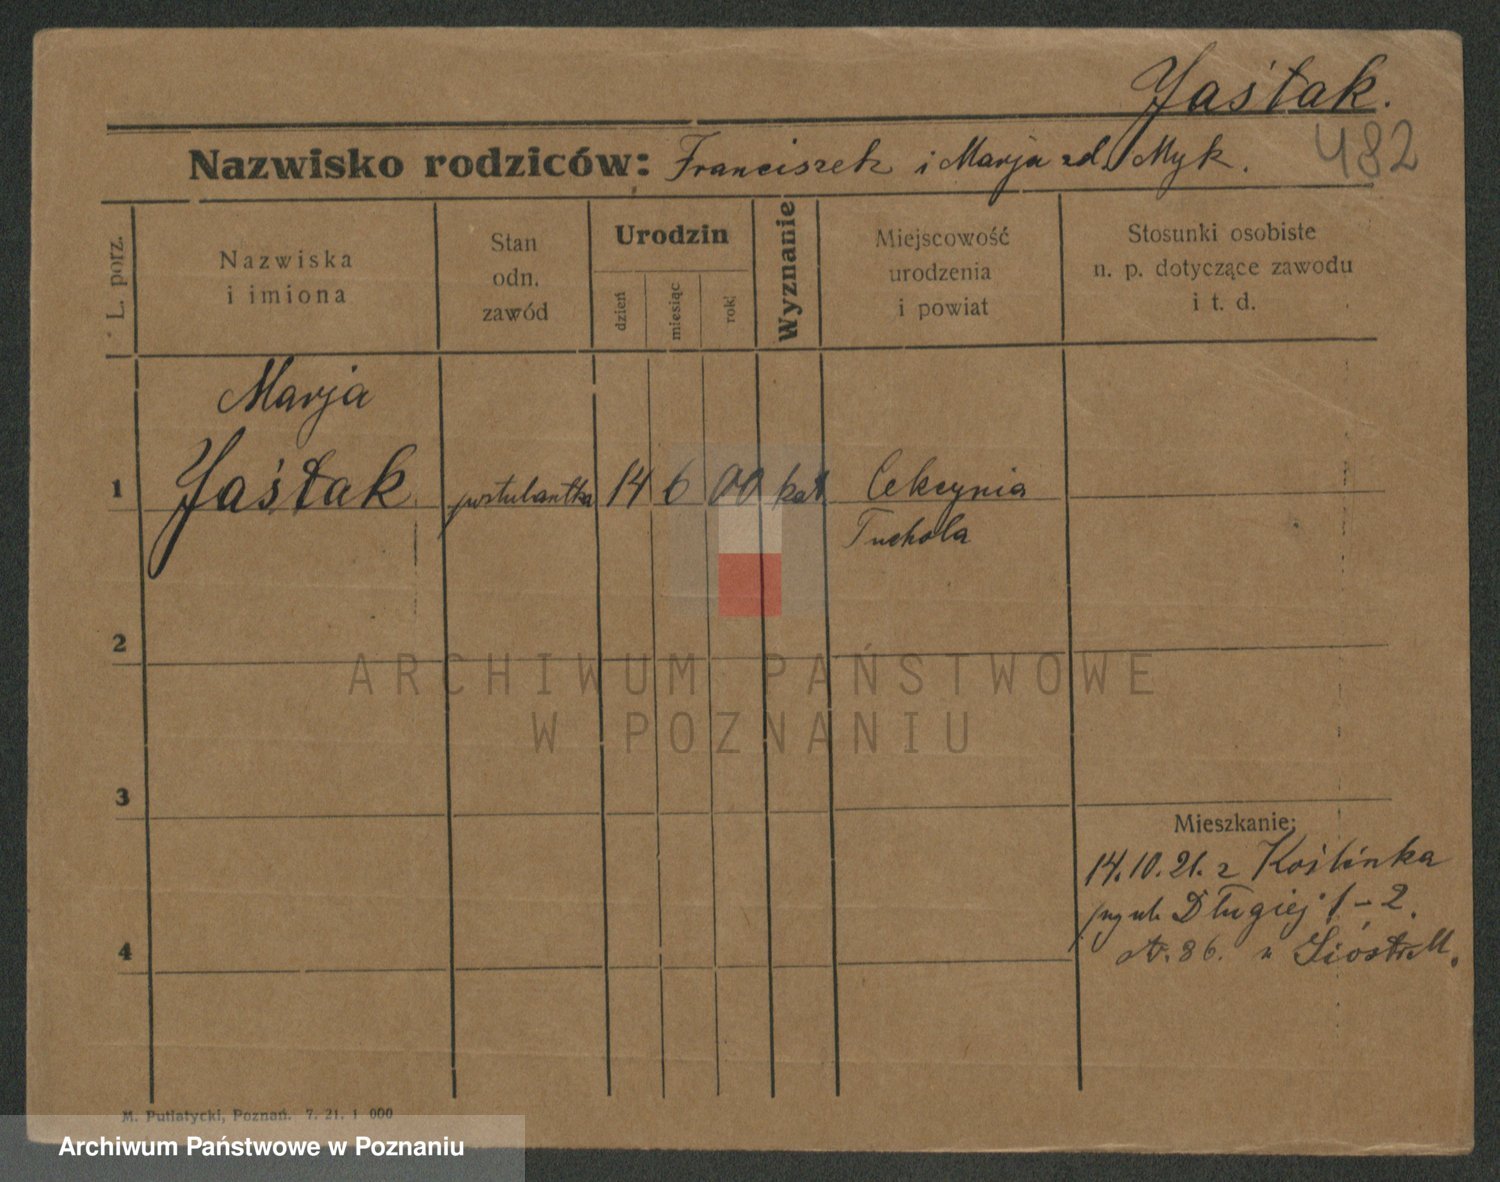 Jaśtak.
482
Nazwisko rodziców: Franciszek i Marja zd. Myk.
L. porz.
Nazwiska
i imiona
Stan
odn.
zawód
Urodzin
dzień
miesiąc
rok
Wyznanie
Miejscowość
urodzenia
i powiat
Stosunki osobiste
n. p. dotyczące zawodu
i t. d.
Marja
1 Jaśtak postulantka 14 6 00 kat. Cekcynia
Tuchola
2
ARCHIWUM PAŃSTWOWE
W POZNANIU
3
Mieszkanie:
14.10.21. z Koślinka
Długiej 1-2.
86. u Sióstr M.
4
M. Putiatycki, Poznań. 7. 21. 1 000
Archiwum Państwowe w Poznaniu